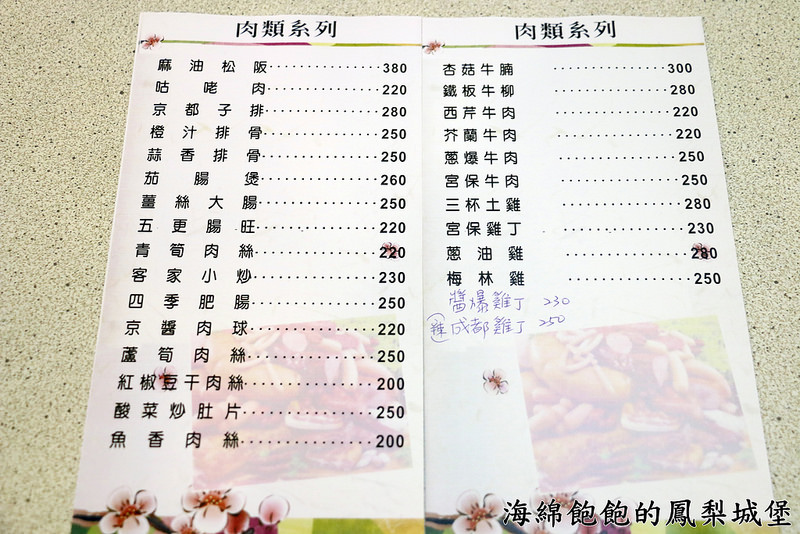 肉類系列
麻油松阪··············380
咕咾肉··············220
京都子排··············280
橙汁排骨··············250
蒜香排骨··············250
茄腸煲··············260
薑絲大腸··············250
五更腸旺··············220
青筍肉絲··············220
客家小炒··············230
四季肥腸··············250
京醬肉球··············220
蘆筍肉絲··············250
紅椒豆干肉絲··············200
酸菜炒肚片··············250
魚香肉絲··············200
肉類系列
杏菇牛腩··············300
鐵板牛柳··············280
西芹牛肉··············220
芥蘭牛肉··············220
蔥爆牛肉··············250
宮保牛肉··············250
三杯土雞··············280
宮保雞丁··············230
蔥油雞··············280
梅林雞··············250
醬爆雞丁 230
辣 成都雞丁 250
海綿飽飽的鳳梨城堡